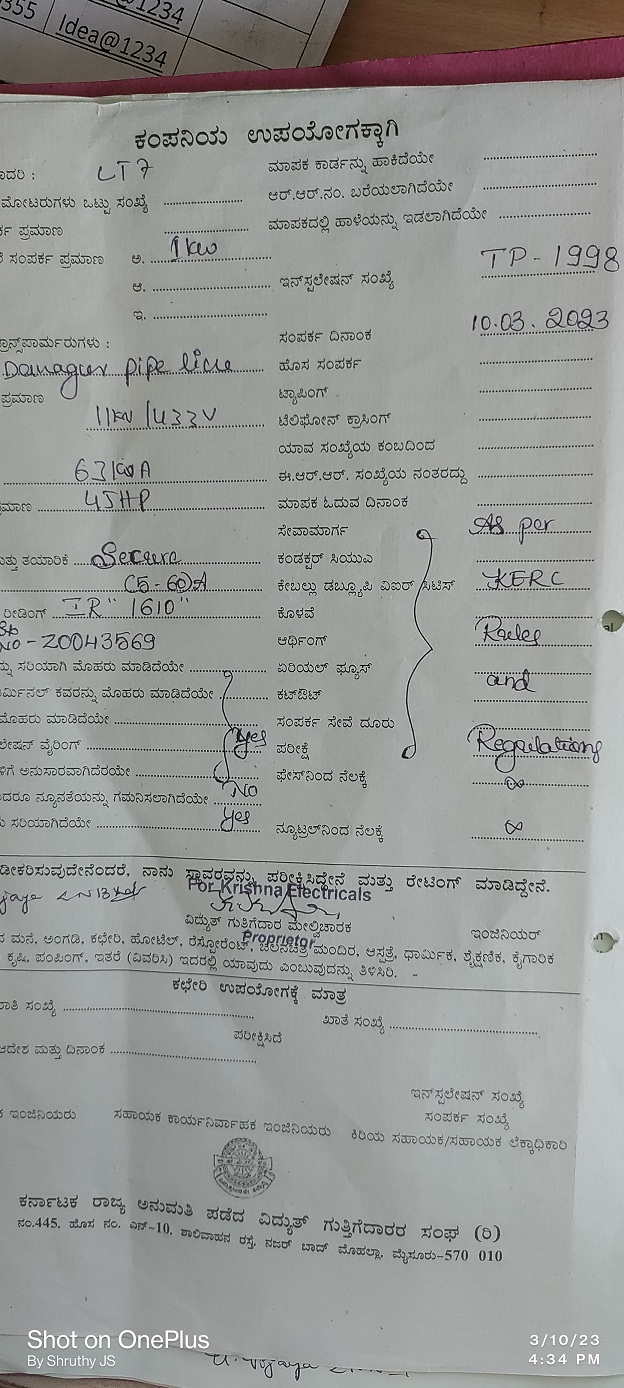 355 Idea@1234
@1234
ಕಂಪನಿಯ ಉಪಯೋಗಕ್ಕಾಗಿ
ಮಾದರಿ : LT7 ಮಾಪಕ ಕಾರ್ಡನ್ನು ಹಾಕಿದೆಯೇ
ಮೋಟರುಗಳು ಒಟ್ಟು ಸಂಖ್ಯೆ ಆರ್.ಆರ್.ನಂ. ಬರೆಯಲಾಗಿದೆಯೇ
ಪ್ರಮಾಣ ಮಾಪಕದಲ್ಲಿ ಹಾಳೆಯನ್ನು ಇಡಲಾಗಿದೆಯೇ
ಸಂಪರ್ಕ ಪ್ರಮಾಣ ಅ. 1kw
ಆ. ಇನ್‌ಸ್ಟಲೇಷನ್ ಸಂಖ್ಯೆ TP-1998
ಇ.
ಸಂಪರ್ಕ ದಿನಾಂಕ 10.03.2023
pipe line ಹೊಸ ಸಂಪರ್ಕ
ಪ್ರಮಾಣ ಟ್ಯಾಪಿಂಗ್
11kv/433V ಟೆಲಿಫೋನ್ ಕ್ರಾಸಿಂಗ್
ಯಾವ ಸಂಖ್ಯೆಯ ಕಂಬದಿಂದ
ಈ.ಆರ್.ಆರ್. ಸಂಖ್ಯೆಯ ನಂತರದ್ದು
45HP ಮಾಪಕ ಓದುವ ದಿನಾಂಕ
ಸೇವಾಮಾರ್ಗ As per
ಮತ್ತು ತಯಾರಿಕೆ Secure ಕಂಡಕ್ಟರ್ ಸಿಯುಎ
C5-60)A ಕೇಬಲ್ಲು ಡಬ್ಲ್ಯೂಪಿ ವಿಐಆರ್ ಸಿಟಿಸ್ KERC
ರೀಡಿಂಗ್ IR "1610" ಕೊಳವೆ
NO - 20043569 ಆರ್ಥಿಂಗ್ Rules
ಸರಿಯಾಗಿ ಮೊಹರು ಮಾಡಿದೆಯೇ ಏರಿಯಲ್ ಫ್ಯೂಸ್
ಟರ್ಮಿನಲ್ ಕವರನ್ನು ಮೊಹರು ಮಾಡಿದೆಯೇ ಕಟ್‌ಔಟ್ and
ಮೊಹರು ಮಾಡಿದೆಯೇ ಸಂಪರ್ಕ ಸೇವೆ ದೂರು
ವೈರಿಂಗ್ Yes ಪರೀಕ್ಷೆ Regulations
ಅನುಸಾರವಾಗಿದೆರಯೇ ಫೇಸ್‌ನಿಂದ ನೆಲಕ್ಕೆ ∞
ನ್ಯೂನತೆಯನ್ನು ಗಮನಿಸಲಾಗಿದೆಯೇ No
ಸರಿಯಾಗಿದೆಯೇ Yes ನ್ಯೂಟ್ರಲ್‌ನಿಂದ ನೆಲಕ್ಕೆ ∞
ನಾನು ಸ್ಥಾವರವನ್ನು ಪರೀಕ್ಷಿಸಿದ್ದೇನೆ ಮತ್ತು ರೇಟಿಂಗ್ ಮಾಡಿದ್ದೇನೆ.
For Krishna Electricals
ವಿದ್ಯುತ್ ಗುತ್ತಿಗೆದಾರ ಮೇಲ್ವಿಚಾರಕ ಇಂಜಿನಿಯರ್
Proprietor
ಮನೆ, ಅಂಗಡಿ, ಕಛೇರಿ, ಹೋಟೆಲ್, ರೆಸ್ಟೋರೆಂಟ್, ಚಲನಚಿತ್ರ ಮಂದಿರ, ಆಸ್ಪತ್ರೆ, ಧಾರ್ಮಿಕ, ಶೈಕ್ಷಣಿಕ, ಕೈಗಾರಿಕ
ಕೃಷಿ, ಪಂಪಿಂಗ್, ಇತರೆ (ವಿವರಿಸಿ) ಇದರಲ್ಲಿ ಯಾವುದು ಎಂಬುವುದನ್ನು ತಿಳಿಸಿರಿ.
ಕಛೇರಿ ಉಪಯೋಗಕ್ಕೆ ಮಾತ್ರ
ಸಂಖ್ಯೆ ಖಾತೆ ಸಂಖ್ಯೆ
ಪರೀಕ್ಷಿಸಿದೆ
ಆದೇಶ ಮತ್ತು ದಿನಾಂಕ
ಇನ್‌ಸ್ಟಲೇಷನ್ ಸಂಖ್ಯೆ
ಸಂಪರ್ಕ ಸಂಖ್ಯೆ
ಇಂಜಿನಿಯರು ಸಹಾಯಕ ಕಾರ್ಯನಿರ್ವಾಹಕ ಇಂಜಿನಿಯರು ಕಿರಿಯ ಸಹಾಯಕ/ಸಹಾಯಕ ಲೆಕ್ಕಾಧಿಕಾರಿ
ಕರ್ನಾಟಕ ರಾಜ್ಯ ಅನುಮತಿ ಪಡೆದ ವಿದ್ಯುತ್ ಗುತ್ತಿಗೆದಾರರ ಸಂಘ (ರಿ)
ನಂ.445, ಹೊಸ ನಂ. ಎನ್-10, ಶಾಲಿವಾಹನ ರಸ್ತೆ, ನಜರ್ ಬಾದ್ ಮೊಹಲ್ಲಾ, ಮೈಸೂರು-570 010
Shot on OnePlus
By Shruthy JS
3/10/23
4:34 PM